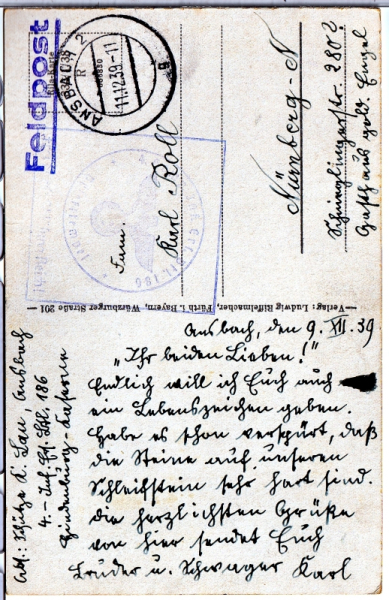 Feldpost
ANSBACH 2
11.12.39-11
Fam.
Karl Roll
Nürnberg-N
Schweiglingerstr. 280 2
Gasth aus gold. Engel
Verlag: Ludwig Riffelmacher, Fürth i. Bayern, Würzburger Straße 201
Ansbach, den 9. XII. 39
„Ihr beiden Lieben!"
Endlich will ich Euch auch
ein Lebenszeichen geben.
Habe es schon verspürt, daß
die Steine auf unseren
Schleifstein sehr hart sind.
die herzlichsten Grüße
von hier sendet Euch
Bruder u. Schwager Karl
Abs.: Schütze K. Ansbach
4. - Inf. Ers. Btl. 186
Hindenburg-Kaserne